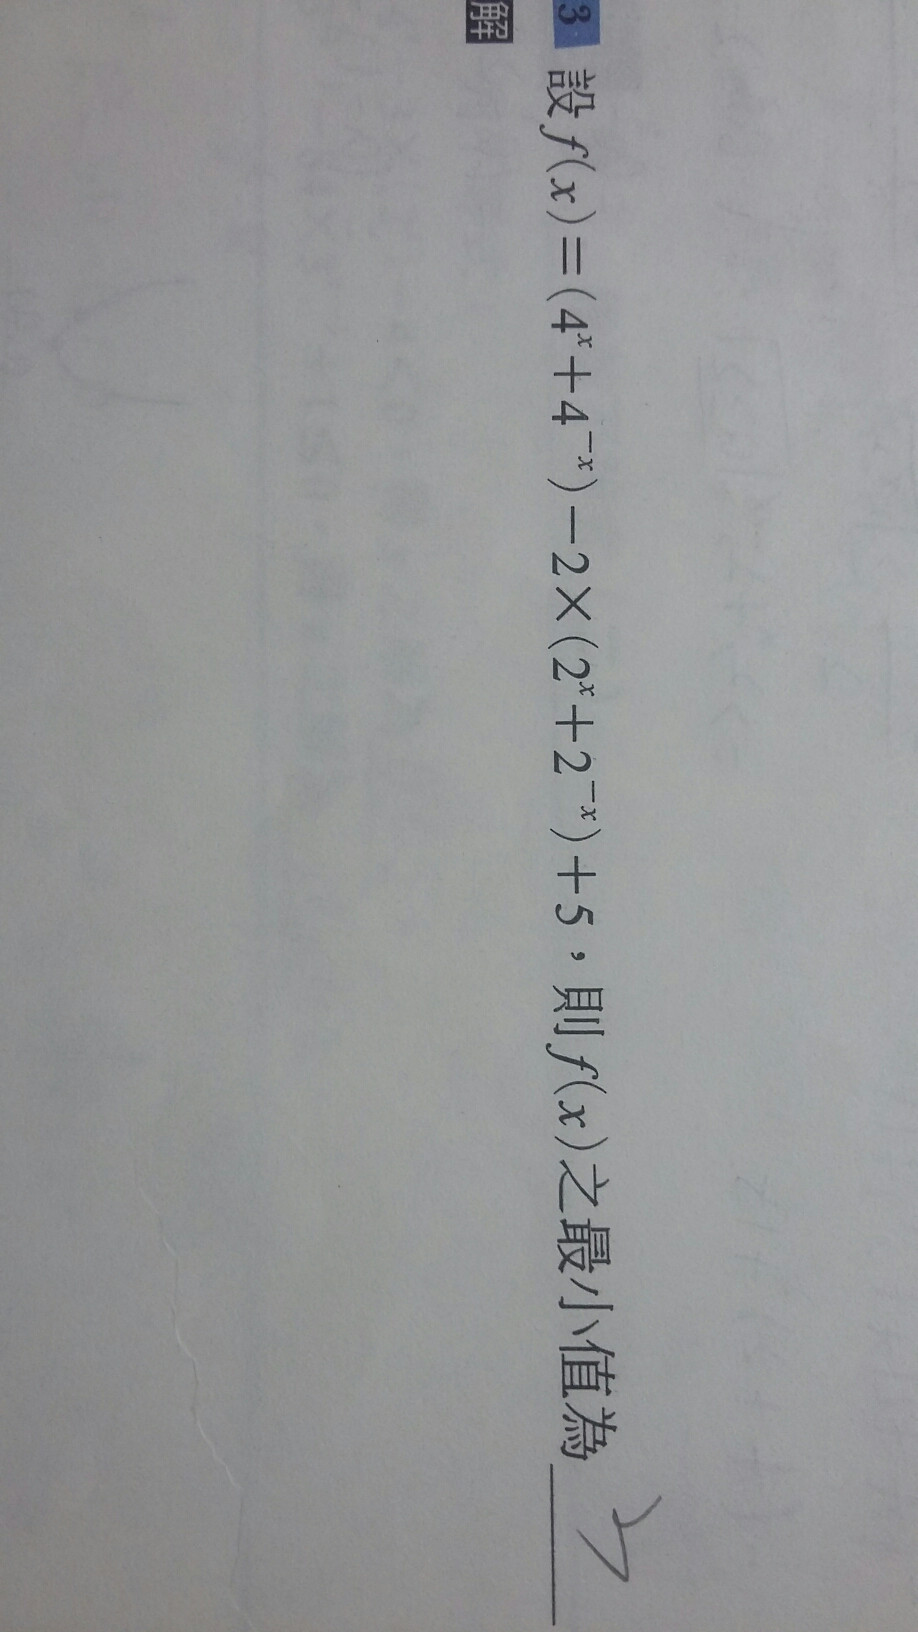 3 設f(x)=(4ˣ+4⁻ˣ)-2×(2ˣ+2⁻ˣ)+5，則f(x)之最小值為
解